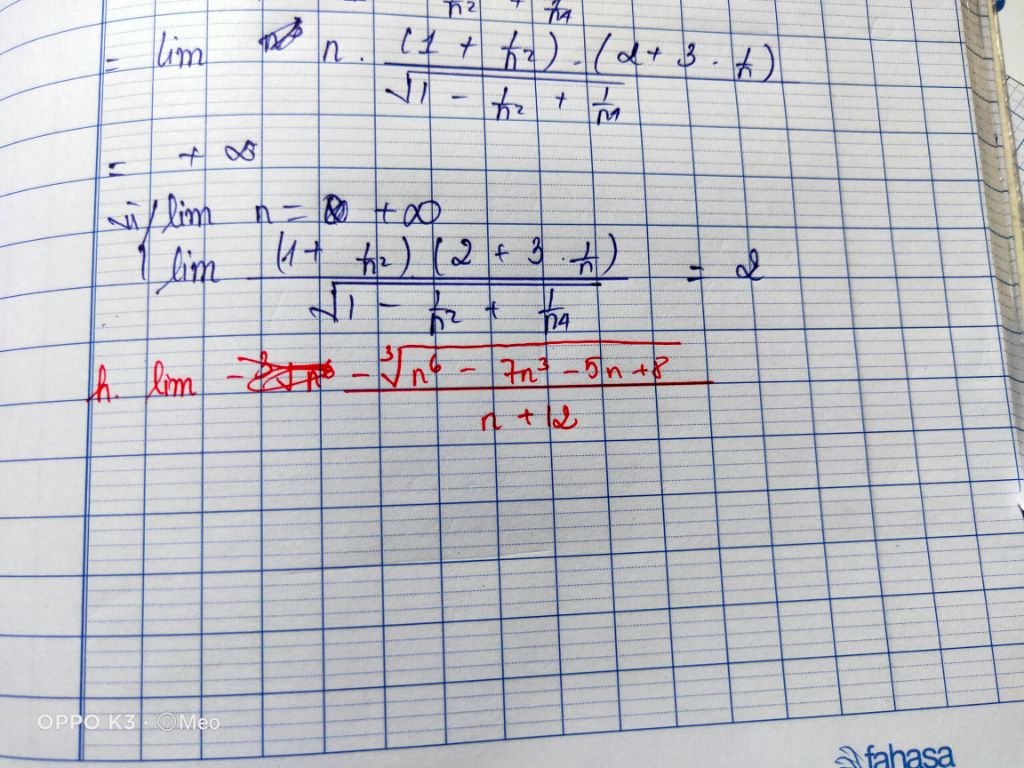 n² + n⁴
= lim n . (1 + 1/n²) . (2 + 3 . 1/n) / √(1 - 1/n² + 1/n⁴)
= + ∞
vì { lim n = +∞
lim (1 + 1/n²) . (2 + 3 . 1/n) / √(1 - 1/n² + 1/n⁴) = 2
h. lim -∛(n⁶ - 7n³ - 5n + 8) / (n + 12)
OPPO K3 · ©Meo
fahasa